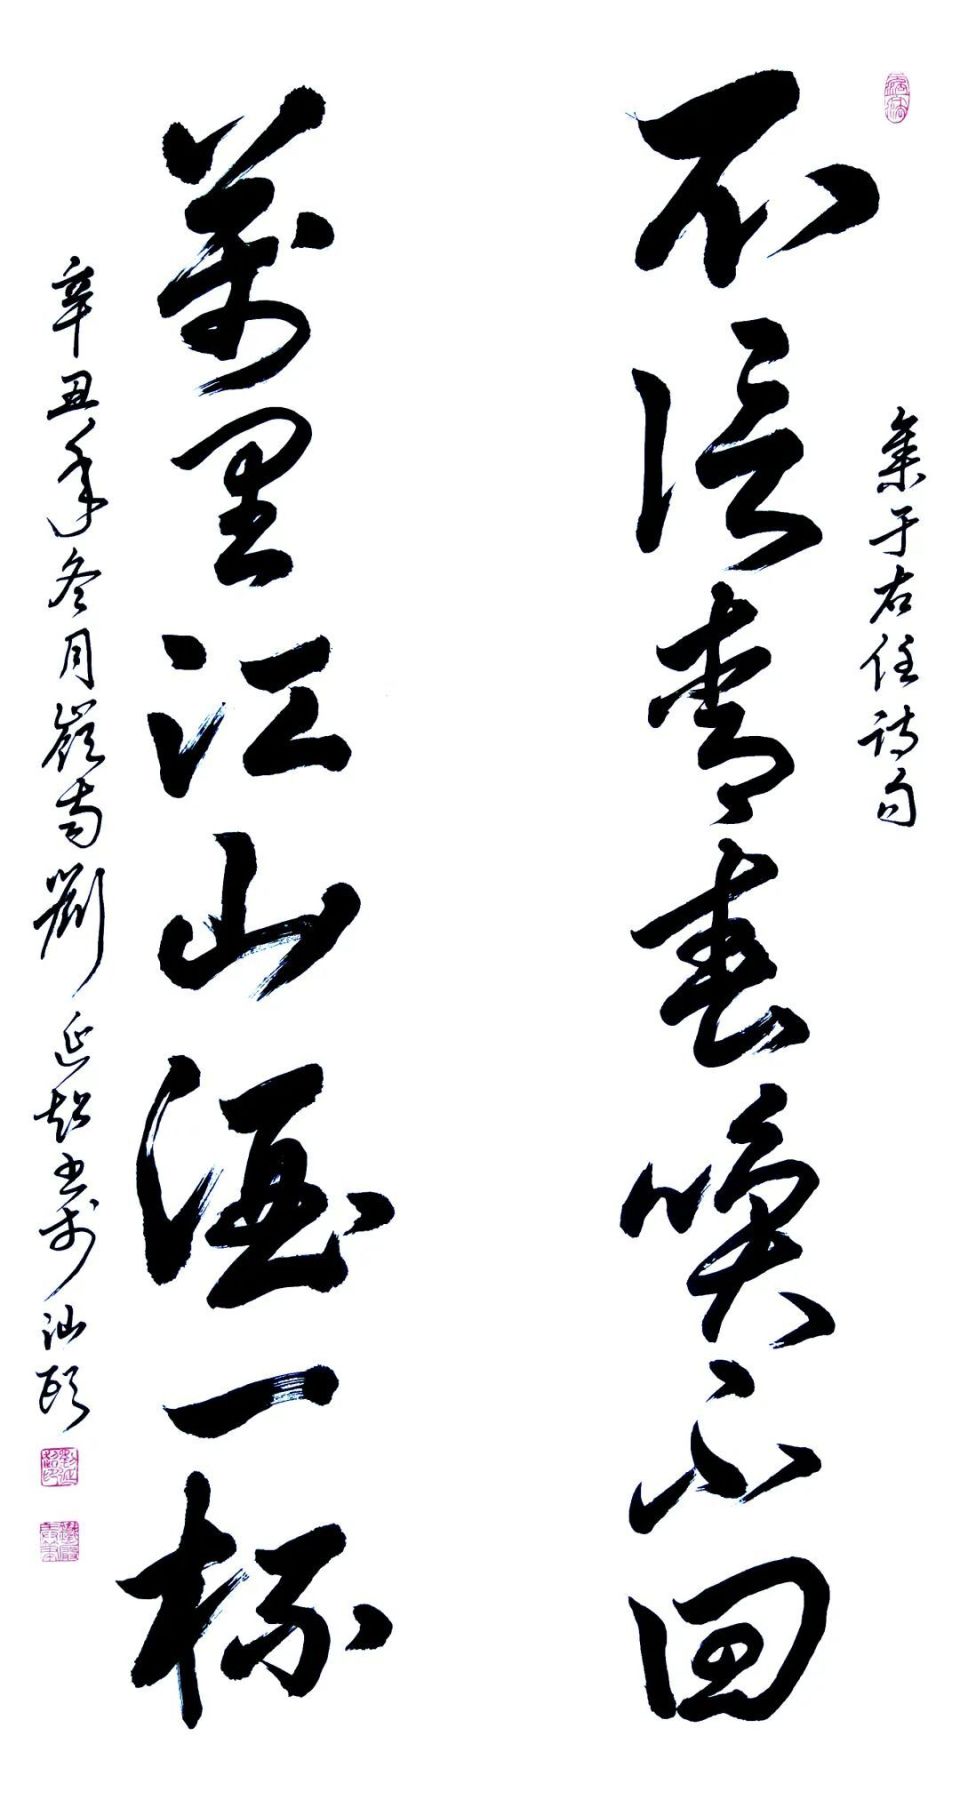 不信青春唤不回
集于右任诗句
万里江山酒一杯
辛丑年冬月岭南刘延超书于汕头